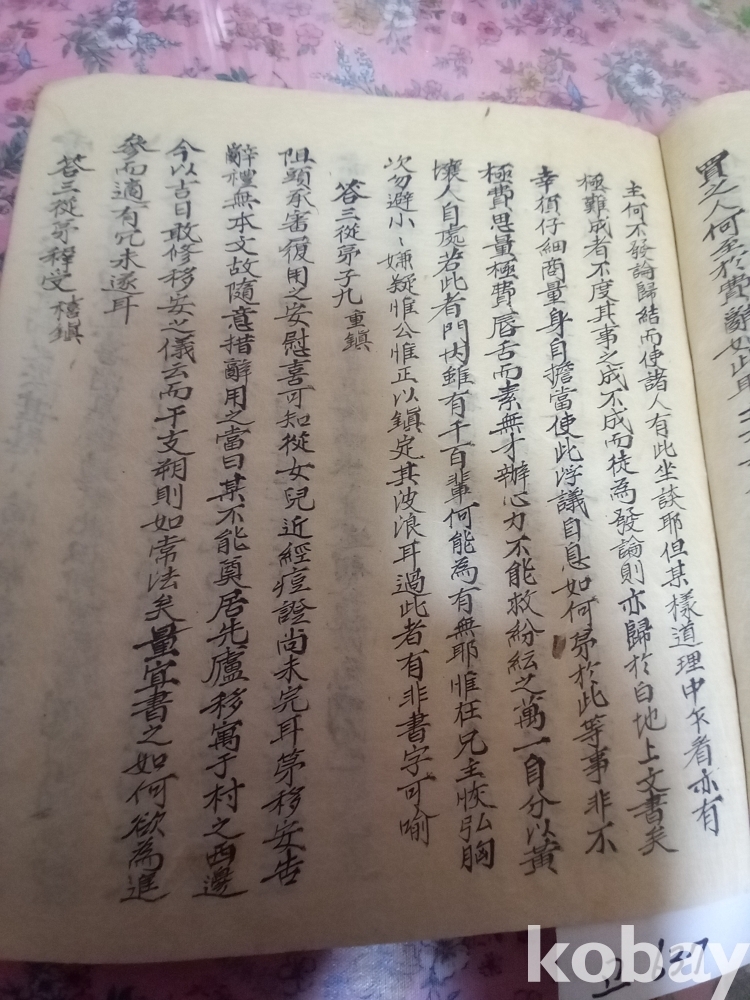 買之人何至於費辭如此耶
主何不發論歸結而使諸人有此坐談耶但某樣道理中乍看亦有
極難成者不度其事之成不成而徒為發論則亦歸於白地上文書矣
幸須仔細商量身自擔當使此浮議自息如何弟於此等事非不
極費思量極費唇舌而素無才辦心力不能救紛紜之萬一自分以黃
壤人自處若此者門內雖有千百輩何能為有無耶惟在兄主恢弘胸
次勿避小〻嫌疑惟公惟正以鎭定其波浪耳過此者有非書字可喻
答三從弟子九 重鎭
阻頭承審履用之安慰喜可知從女兒近經痘證尚未完耳第移安告
辭禮無本文故隨意措辭用之當曰某不能奠居先廬移寓于村之西邊
今以吉日敢修移安之儀云而干支朔則如常法矣量宜書之如何欲為進
參而適有冗未遂耳
答三從弟穉受 禧鎭
kobay
고 637